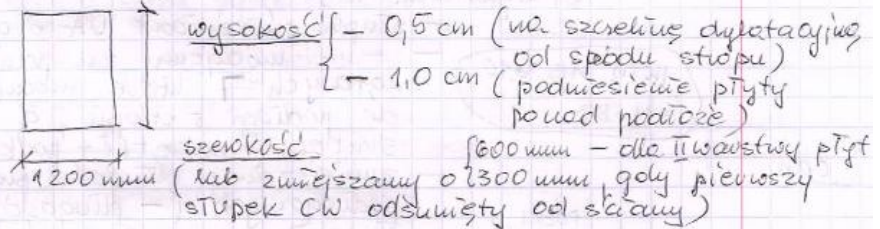 wysokość { - 0,5 cm (na szczelinę dylatacyjną
od spodu stropu)
- 1,0 cm (podniesienie płyty
ponad podłoże)
szerokość { 600 mm - dla II warstwy płyt
1200 mm (lub zmiejszamy o 300 mm, gdy pierwszy
słupek CW odsunięty od ściany)